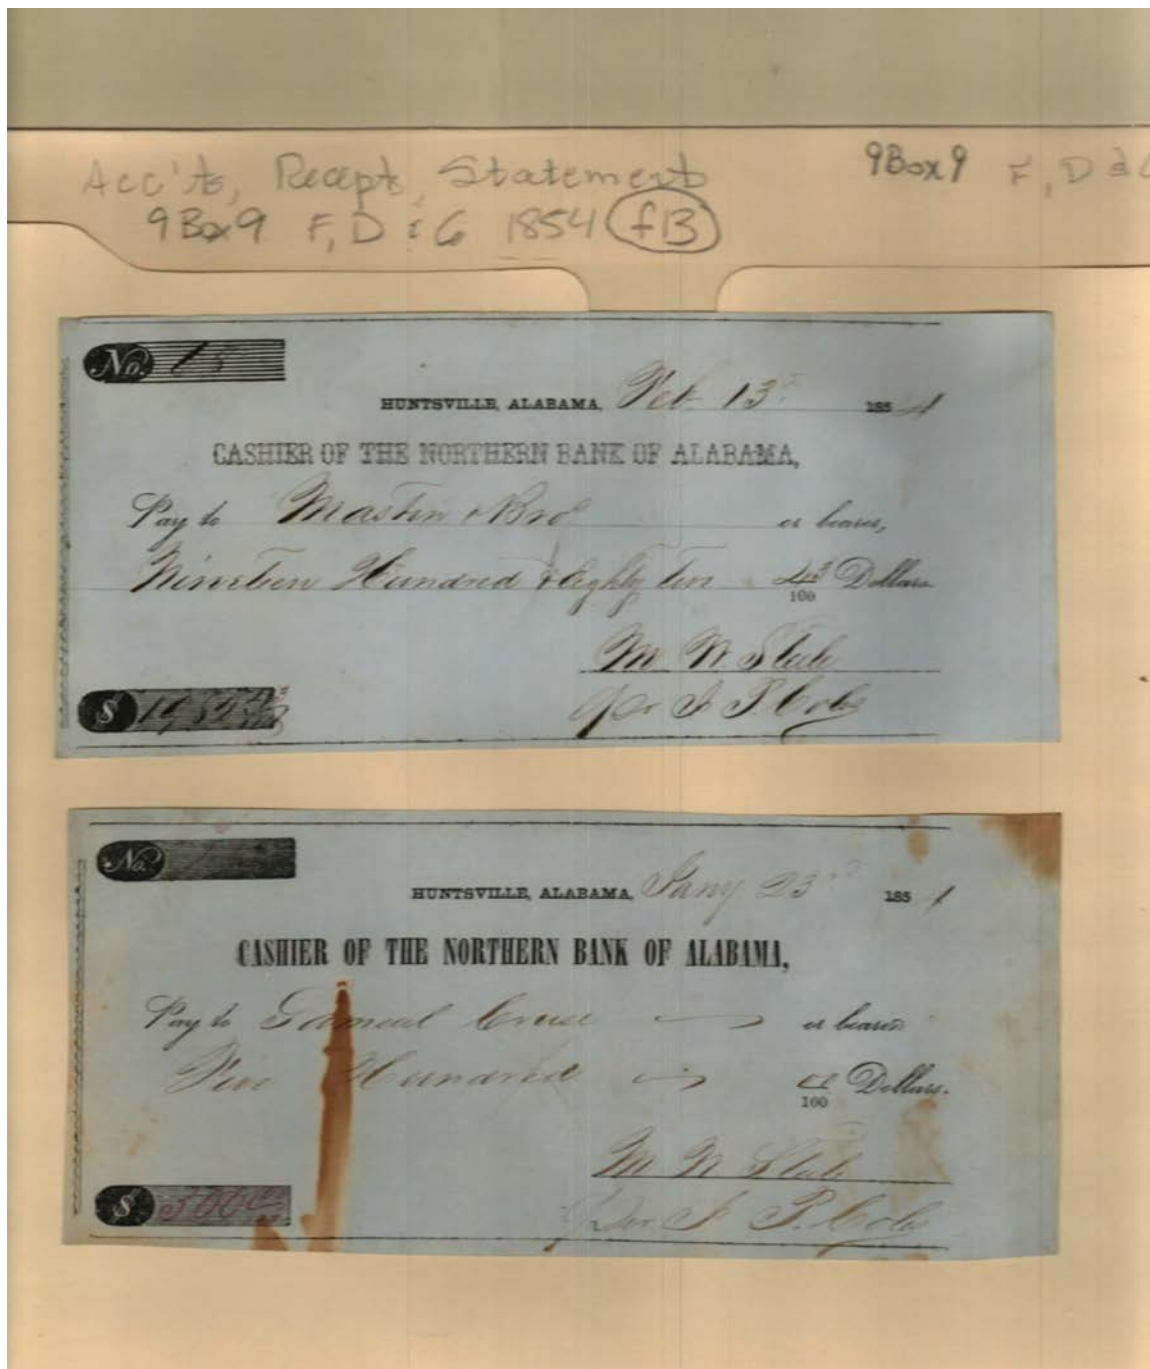 Acc'ts, Recepts, Statements
9Box9 F, D & G 1854 f13
9Box9 F, D &
No. 18
HUNTSVILLE, ALABAMA, Feb. 13th 1854
CASHIER OF THE NORTHERN BANK OF ALABAMA,
Pay to Mastin & Bro or bearer,
Nineteen Hundred & Eighty two 43/100 Dollars.
M W Steele
$ 1982 43
per J P. Cobs
No.
HUNTSVILLE, ALABAMA, Jany 23rd 1854
CASHIER OF THE NORTHERN BANK OF ALABAMA,
Pay to Samuel Cruse or bearer
Five Hundred 00/100 Dollars.
M W Steele
$ 500 00
per J P. Cobs